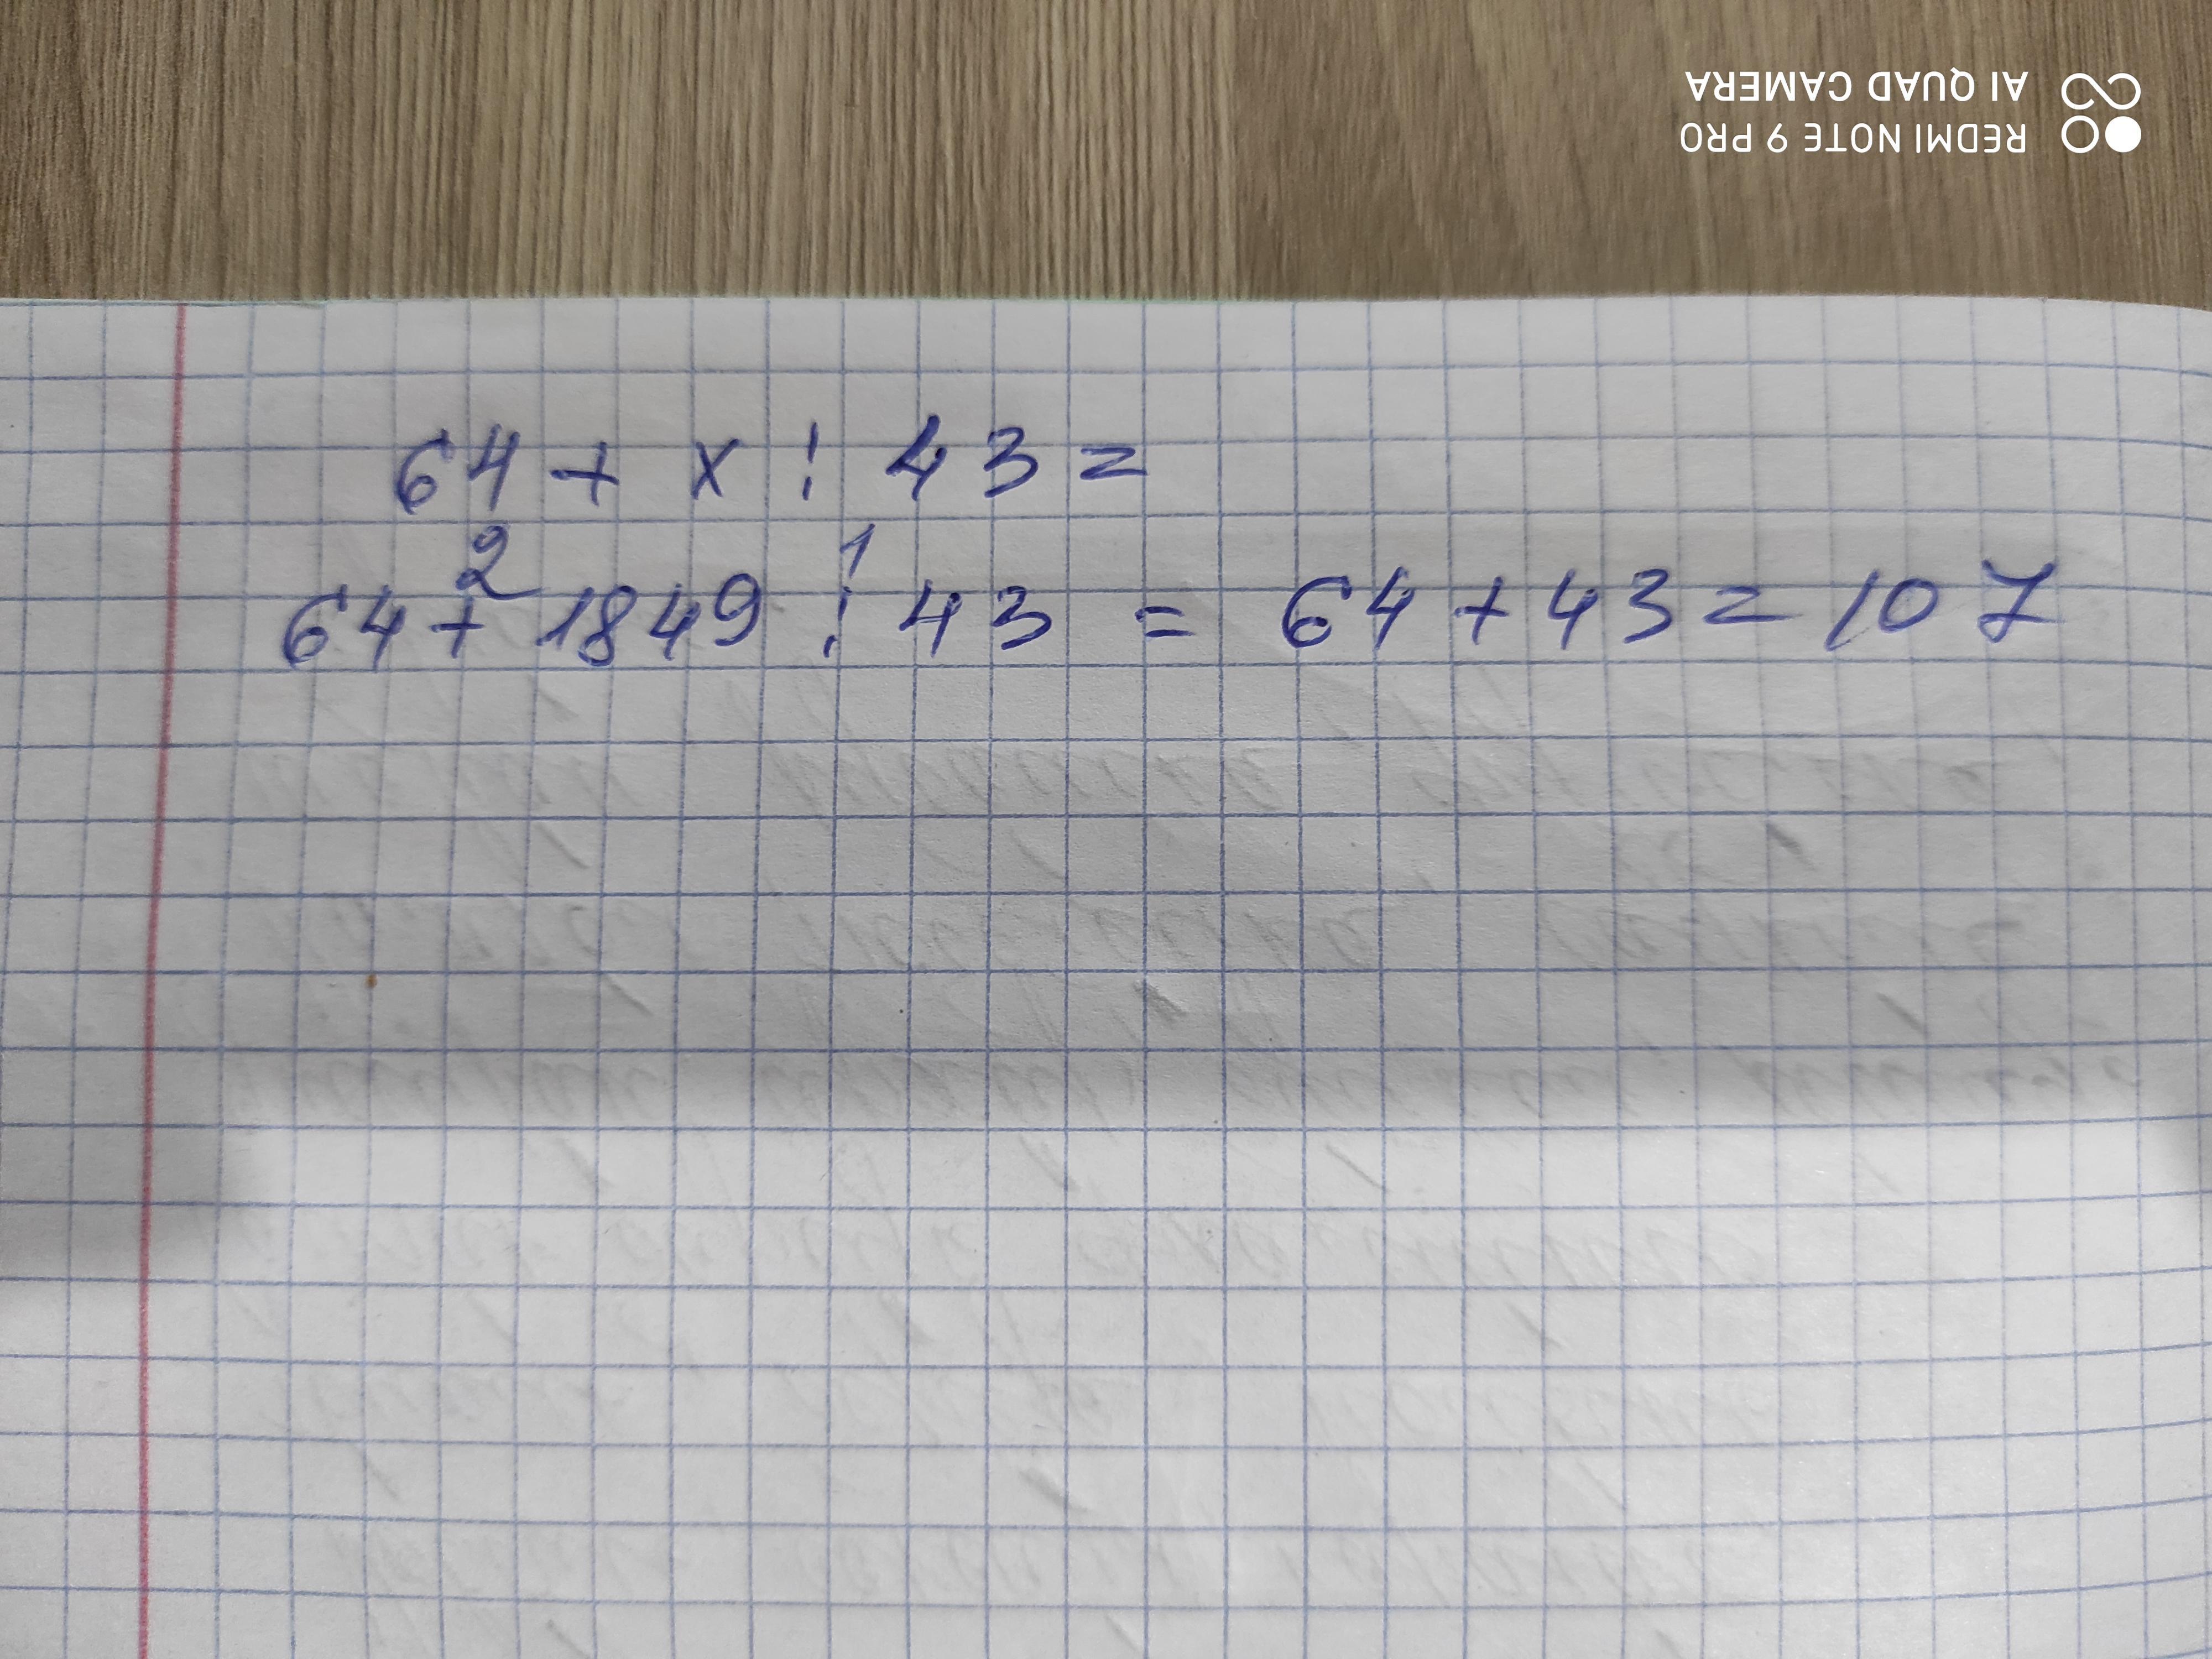 REDMI NOTE 9 PRO
AI QUAD CAMERA
64 + x : 43 =
2 1
64 + 1849 : 43 = 64 + 43 = 107